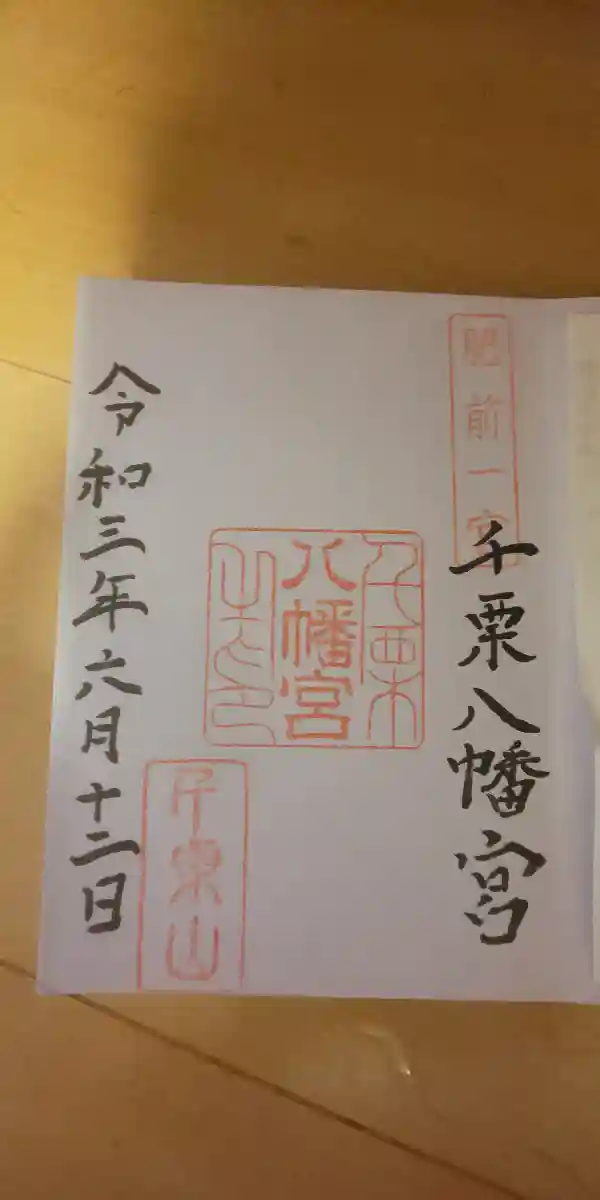 肥前一宮
千栗八幡宮
千栗
八幡宮
千栗山
令和三年六月十二日